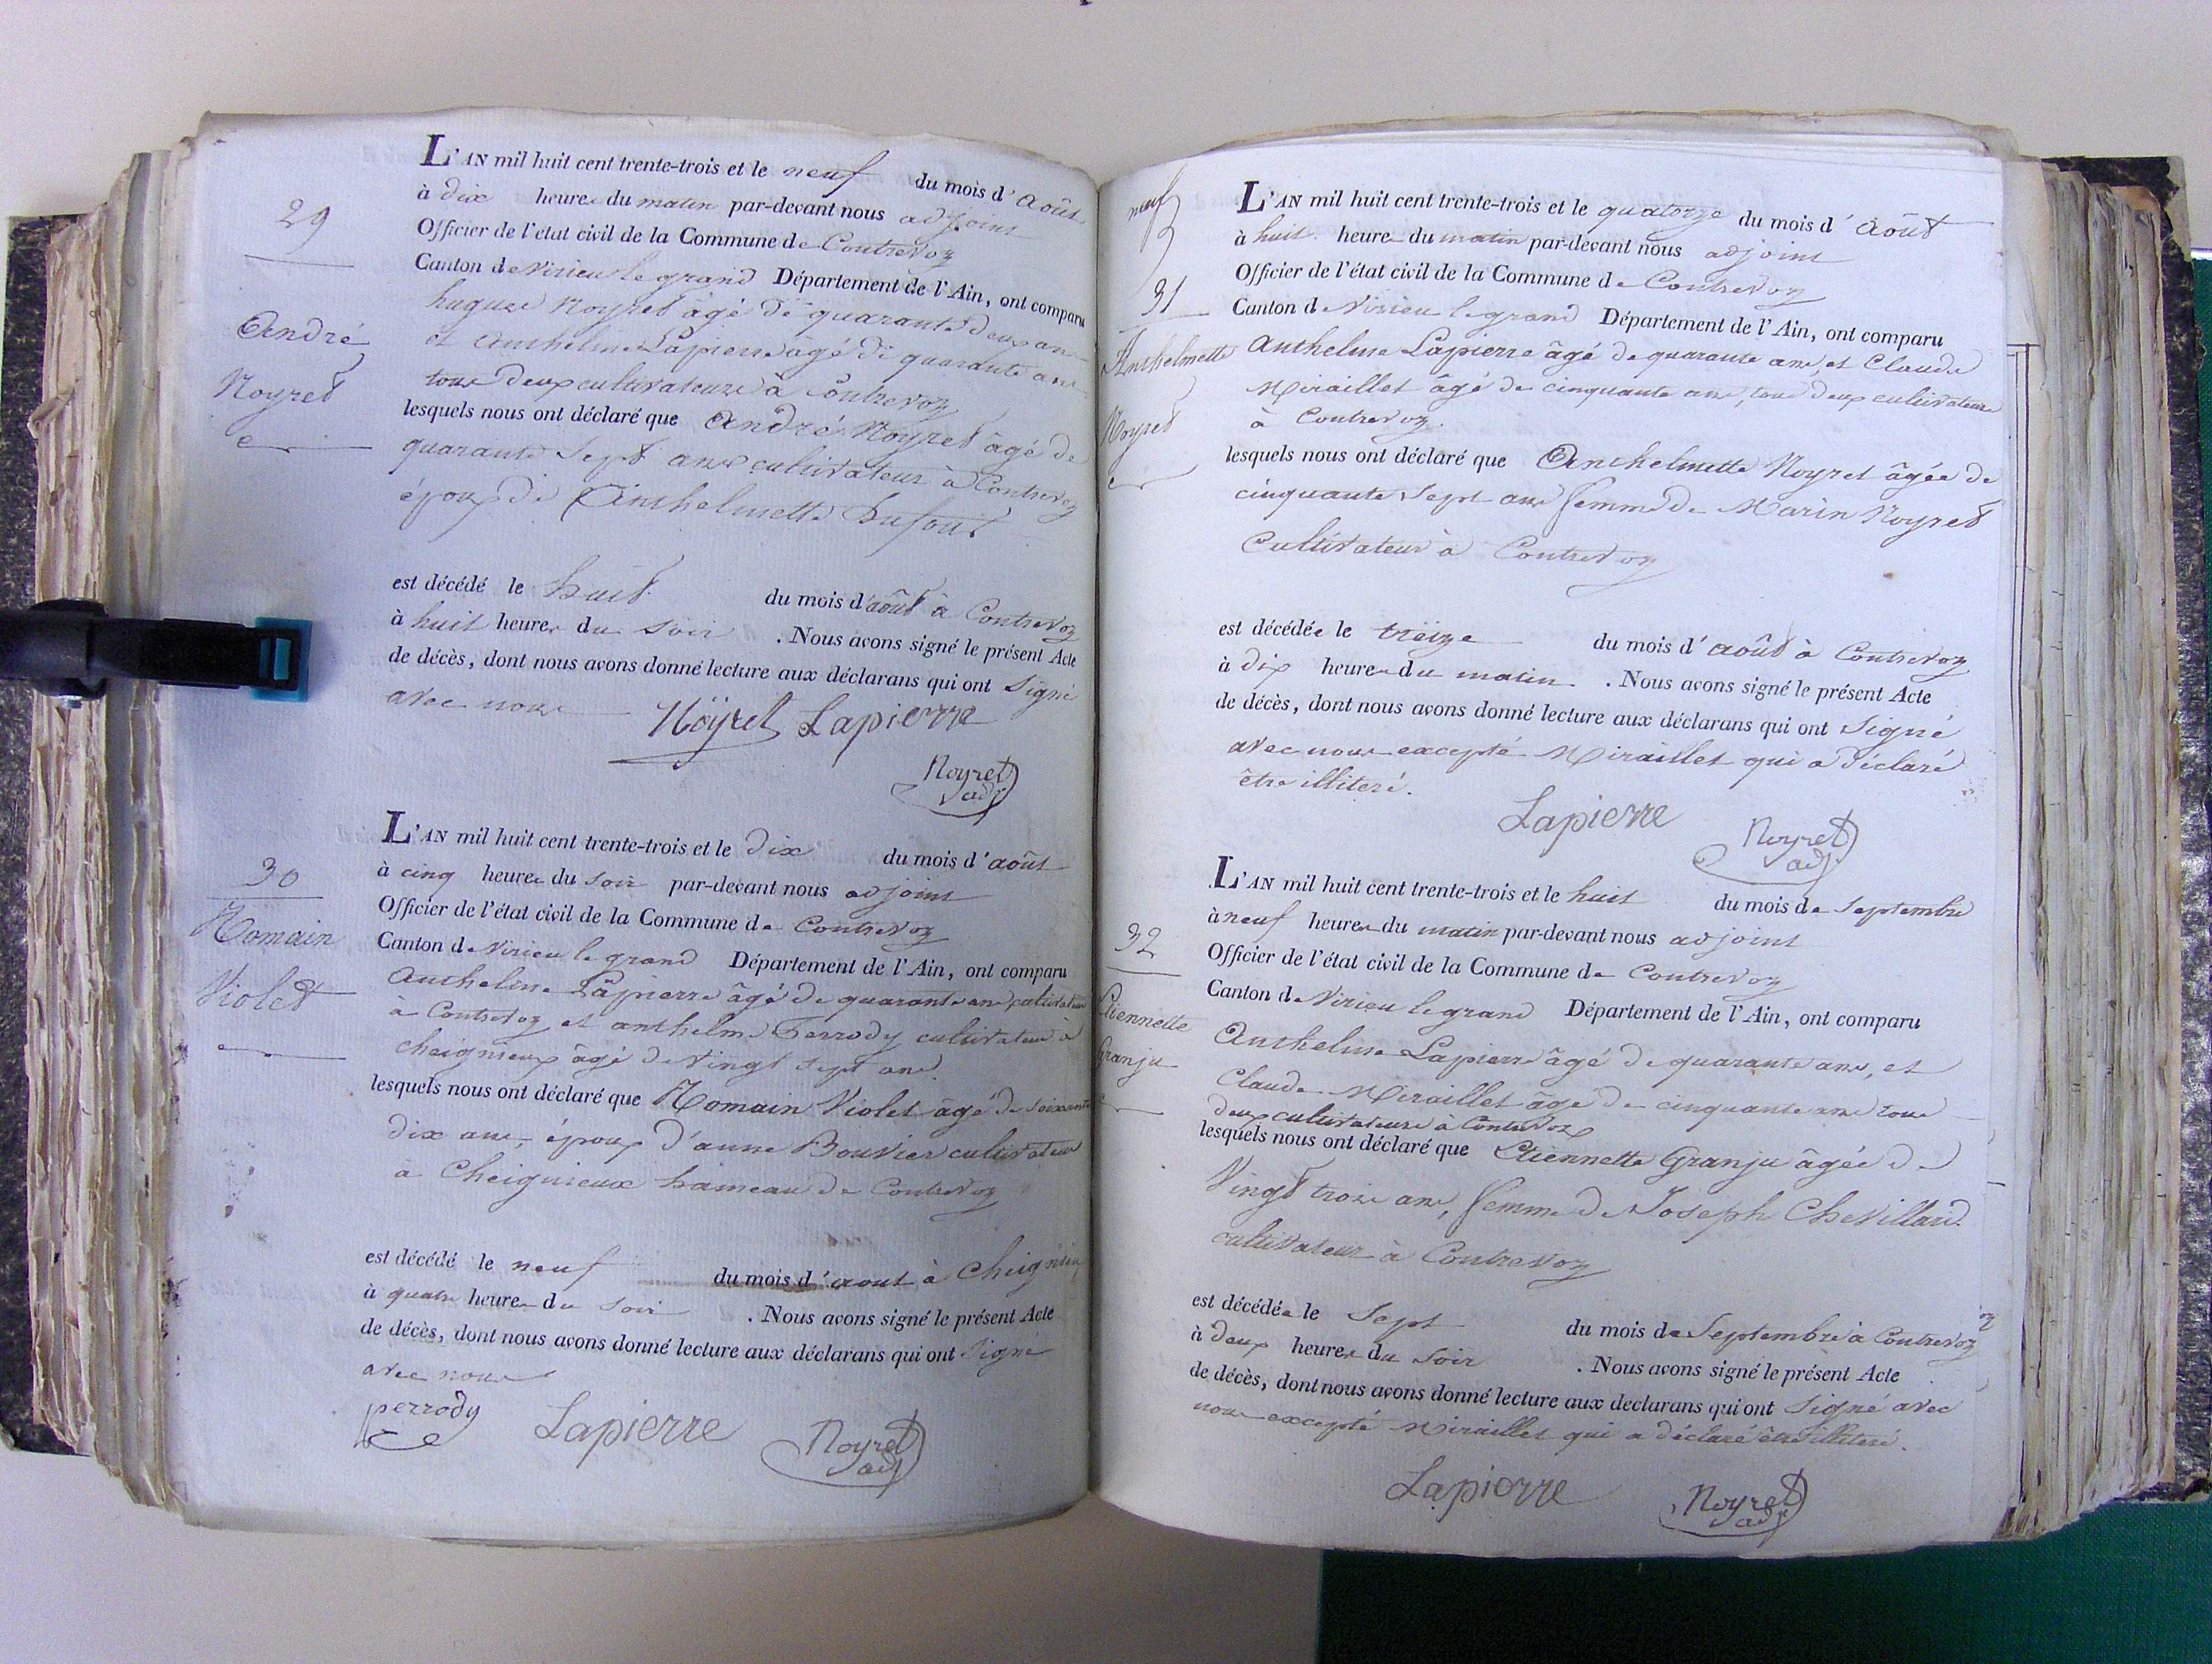 29
André
Noyret
L'AN mil huit cent trente-trois et le neuf du mois d'Août
à dix heures du matin par-devant nous adjoint
Officier de l'etat civil de la Commune de Contrevoz
Canton de Virieu le grand Département de l'Ain, ont comparu
hugues Noyret âgé de quarante deux ans
et Anthelme Lapierre âgé de quarante ans
tous deux cultivateurs à Contrevoz
lesquels nous ont déclaré que André Noyret âgé de
quarante Sept ans cultivateur à Contrevoz
époux de Anthelmette Dufour
est décédé le huit du mois d'août à Contrevoz
à huit heures du Soir . Nous avons signé le présent Acte
de décès, dont nous avons donné lecture aux déclarans qui ont Signé
avec nous
Nöyret Lapierre
Noyret
adj
30
Romain
Violet
L'AN mil huit cent trente-trois et le dix du mois d'août
à cinq heures du Soir par-devant nous adjoint
Officier de l'état civil de la Commune de Contrevoz
Canton de Virieu le grand Département de l'Ain, ont comparu
Anthelme Lapierre âgé de quarante ans cultivateur
à Contrevoz et anthelme Perrody cultivateur à
cheignieux âgé de Vingt Sept ans
lesquels nous ont déclaré que Romain Violet âgé de soixante
dix ans, époux d'anne Bouvier cultivateur
à Cheignieux hameau de Contrevoz
est décédé le neuf du mois d'aout à Cheignieu
à quatre heures du Soir . Nous avons signé le présent Acte
de décès, dont nous avons donné lecture aux déclarans qui ont Signé
avec nous
perrody Lapierre Noyret
adj
neuf
31
Anthelmette
Noyret
L'AN mil huit cent trente-trois et le quatorze du mois d'Août
à huit heures du matin par-devant nous adjoint
Officier de l'état civil de la Commune de Contrevoz
Canton de Virieu le grand Département de l'Ain, ont comparu
Anthelme Lapierre âgé de quarante ans, et Claude
Miraillet âgé de cinquante ans, tous deux cultivateurs
à Contrevoz.
lesquels nous ont déclaré que Anthelmette Noyret âgée de
cinquante Sept ans femme de Marin Noyret
Cultivateur à Contrevoz
est décédée le treize du mois d'août à Contrevoz
à dix heures du matin . Nous avons signé le présent Acte
de décès, dont nous avons donné lecture aux déclarans qui ont Signé
avec nous excepté Miraillet qui a déclaré
être illiteré.
Lapierre Noyret
adj
32
Etiennette
Granju
L'AN mil huit cent trente-trois et le huit du mois de Septembre
à neuf heures du matin par-devant nous adjoint
Officier de l'état civil de la Commune de Contrevoz
Canton de Virieu le grand Département de l'Ain, ont comparu
Anthelme Lapierre âgé de quarante ans, et
Claude Miraillet âgé de cinquante ans tous
deux cultivateurs à Contrevoz
lesquels nous ont déclaré que Etiennette Granju âgée de
Vingt trois ans, femme de Joseph Chevillard
cultivateur à Contrevoz
est décédée le Sept du mois de Septembre à Contrevoz
à deux heures du Soir . Nous avons signé le présent Acte
de décès, dont nous avons donné lecture aux declarans qui ont Signé avec
nous excepté Miraillet qui a déclaré être illiteré.
Lapierre Noyret
adj